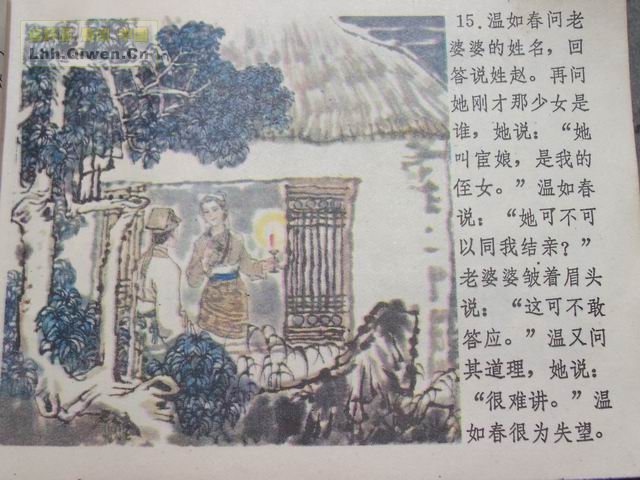 Lhh.Qiwen.Cn
15.温如春问老
婆婆的姓名，回
答说姓赵。再问
她刚才那少女是
谁，她说：“她
叫宦娘，是我的
侄女。”温如春
说：“她可不可
以同我结亲？”
老婆婆皱着眉头
说：“这可不敢
答应。”温又问
其道理，她说：
“很难讲。”温
如春很为失望。